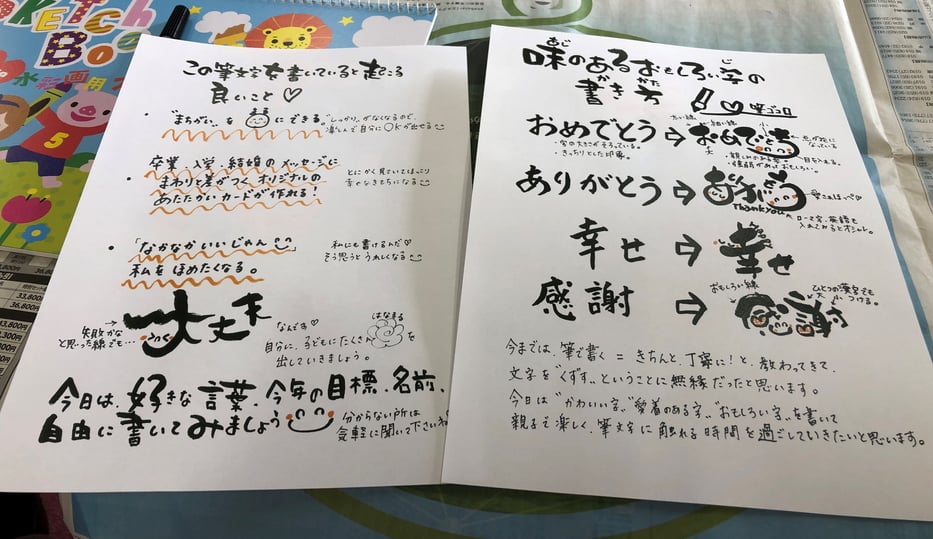 SKETCH
BOOK
水彩画用
5
この筆文字を書いていると起こる
良いこと♡
・"まちがい"を 丸 にできる
"しっかり"がなくなるので、
楽しんで自分にOKが出せる
卒業、入学、結婚のメッセージに
・まわりと差がつくオリジナルの
あたたかいカードが作れる!
とにかく見ていてほっこり
幸せなきもちになる
・「なかなかいいじゃん」
私をほめたくなる。
私にも書けるんだ♡
そう思うとうれしくなる
失敗かな
と思った線でも…→
大丈夫
なんです♡
はなまる
自分に、子どもにたくさん を
出していきましょう。
今日は、好きな言葉、今年の目標、名前、
自由に書いてみましょう
分からない所は
気軽に聞いて下さいね
味のあるおもしろい字の
あじ じ
書き方
か かた
! ♡ 筆ゴコロ
おめでとう⇒おめでとう
・字の大きさがそろっている。
・きっちりとした印象。
太い線
細い線
小
大
点が顔に
なっている
・親しみがある。
・強弱があっておもしろい。
ありがとう⇒ありがとう
Thank you
ローマ字、英語も
入れてみるとオシャレ。
幸せ⇒幸せ
感謝⇒感謝
おもしろい線
ひとつの漢字でも
大 小 つける。
今までは、筆で書く=きちんと丁寧に!と、教わってきて
文字を"くずす"ということに無縁だったと思います。
今日は"かわいい字""愛着のある字""おもしろい字"を書いて
親子で楽しく、筆文字に触れる時間を過ごしていきたいと思います。